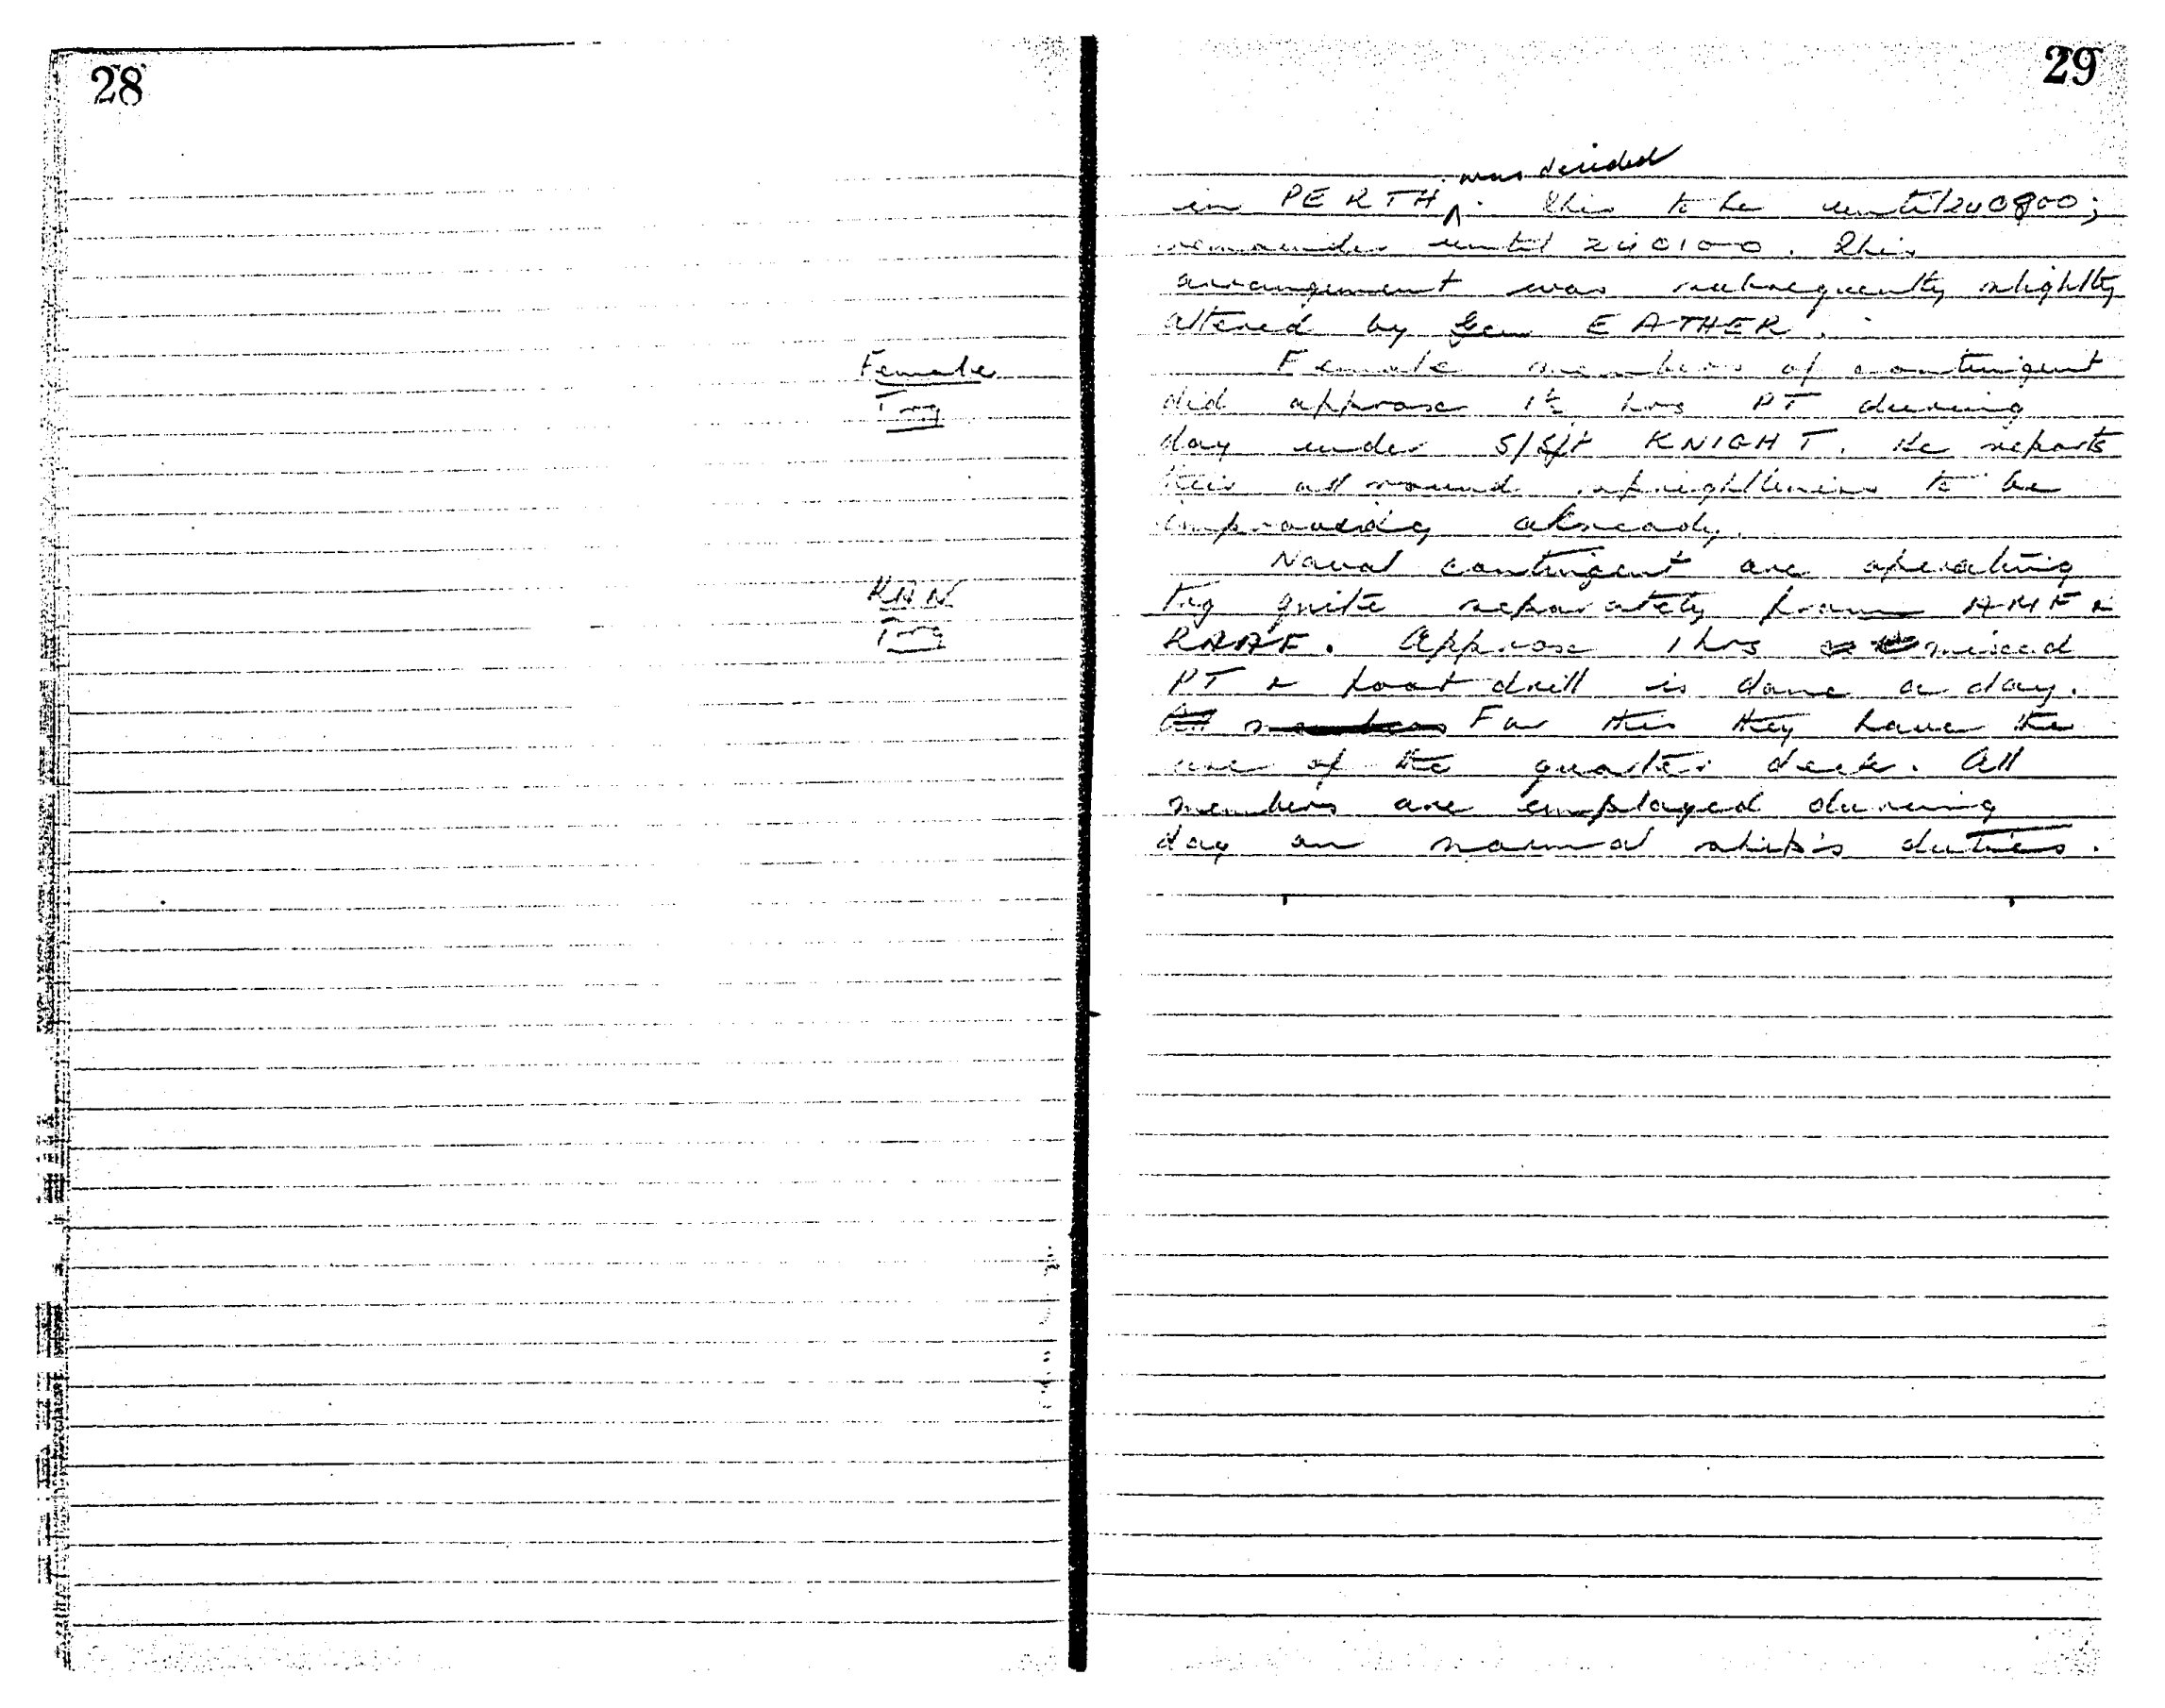 28
Female
Trg
RAN
Trg
29
was decided
in PERTH . This to be until 240800;
remainder until 240100. This
arrangement was subsequently slightly
altered by Gen EATHER.
Female members of contingent
did approx 1½ hrs PT during
day under S/Sgt KNIGHT. He reports
their all round uprightness to be
improving already.
Naval contingent are operating
trg quite separately from AMF &
RAAF. Approx 1 hrs mixed
PT & foot drill is done a day.
All members For this they have the
use of the quarter deck. All
members are employed during
day on normal ship's duties.